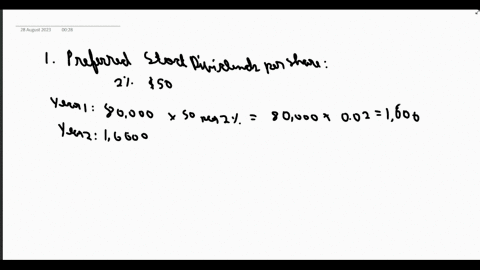 28 August 2023 00:38
1. Preferred Stock Dividends per share:
2% $50
Year 1: 80,000 × 50 × 2% = 80,000 × 0.02 = 1,600
Year 2: 1,6000